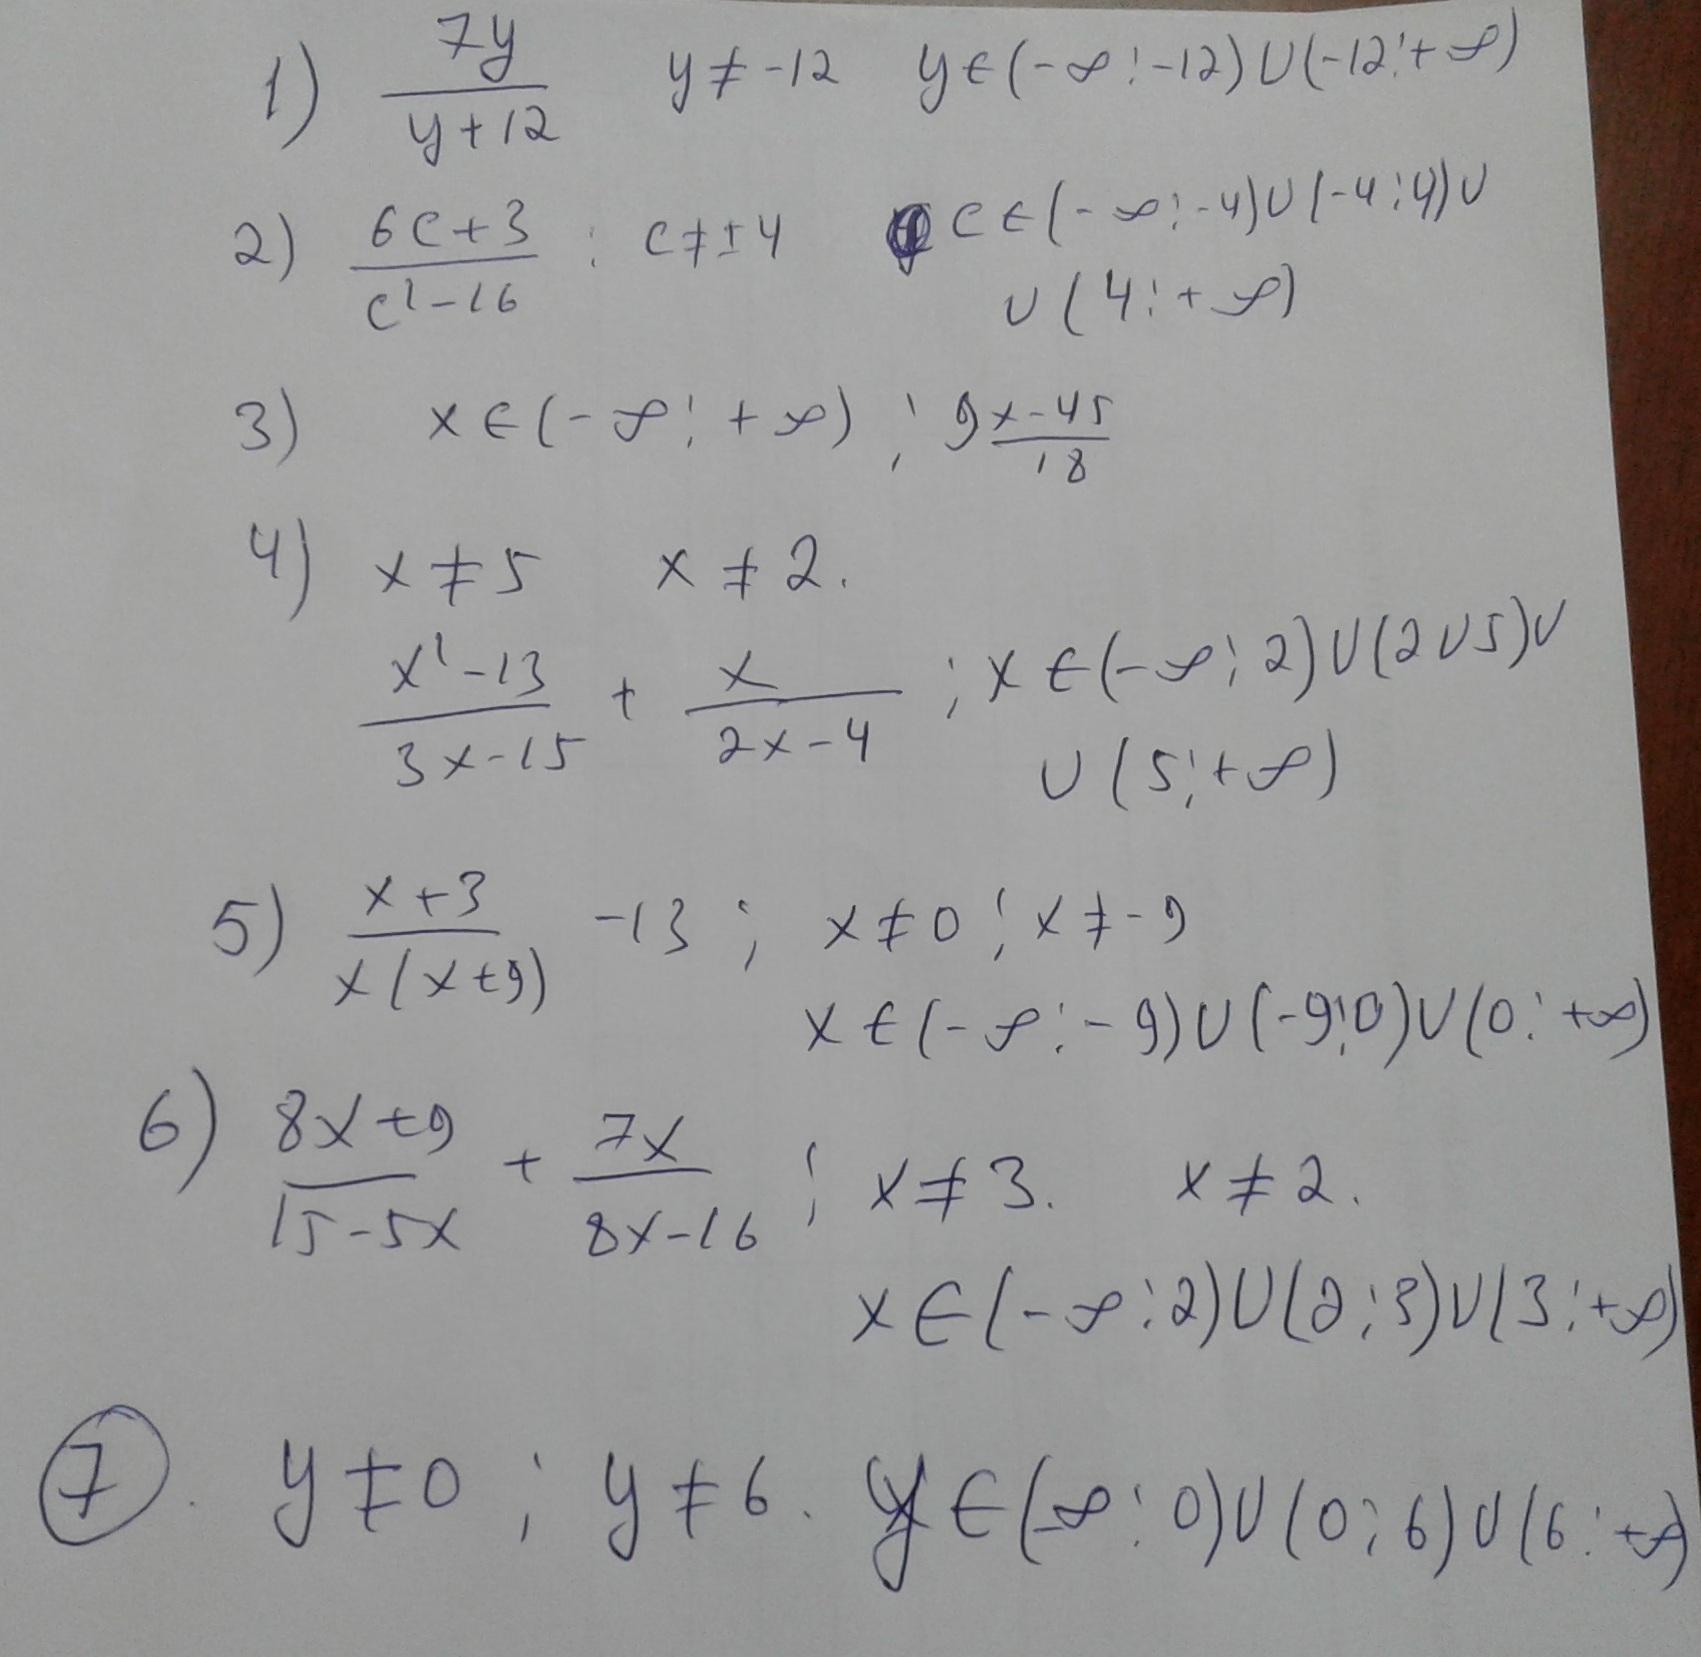 1) 7y/(y+12) y≠-12 y∈(-∞;-12)∪(-12;+∞)
2) (6c+3)/(c²-16) ; c≠±4 c∈(-∞;-4)∪(-4;4)∪
∪(4;+∞)
3) x∈(-∞;+∞) ; (9x-45)/18
4) x≠5 x≠2.
(x²-13)/(3x-15) + x/(2x-4) ; x∈(-∞;2)∪(2∪5)∪
∪(5;+∞)
5) (x+3)/(x(x+9)) -13 ; x≠0 ; x≠-9
x∈(-∞;-9)∪(-9;0)∪(0;+∞)
6) (8x+9)/(15-5x) + 7x/(8x-16) ; x≠3. x≠2.
x∈(-∞;2)∪(2;3)∪(3;+∞)
7. y≠0 ; y≠6. y∈(-∞;0)∪(0;6)∪(6;+∞)